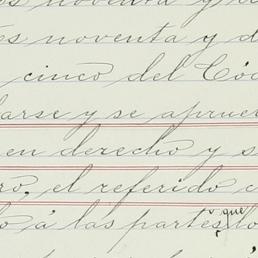 noventa y
es noventa y d
cinco del Cód
larse y se aprue
en derecho y s
ro, el referido c
o á las partes, lo
y que